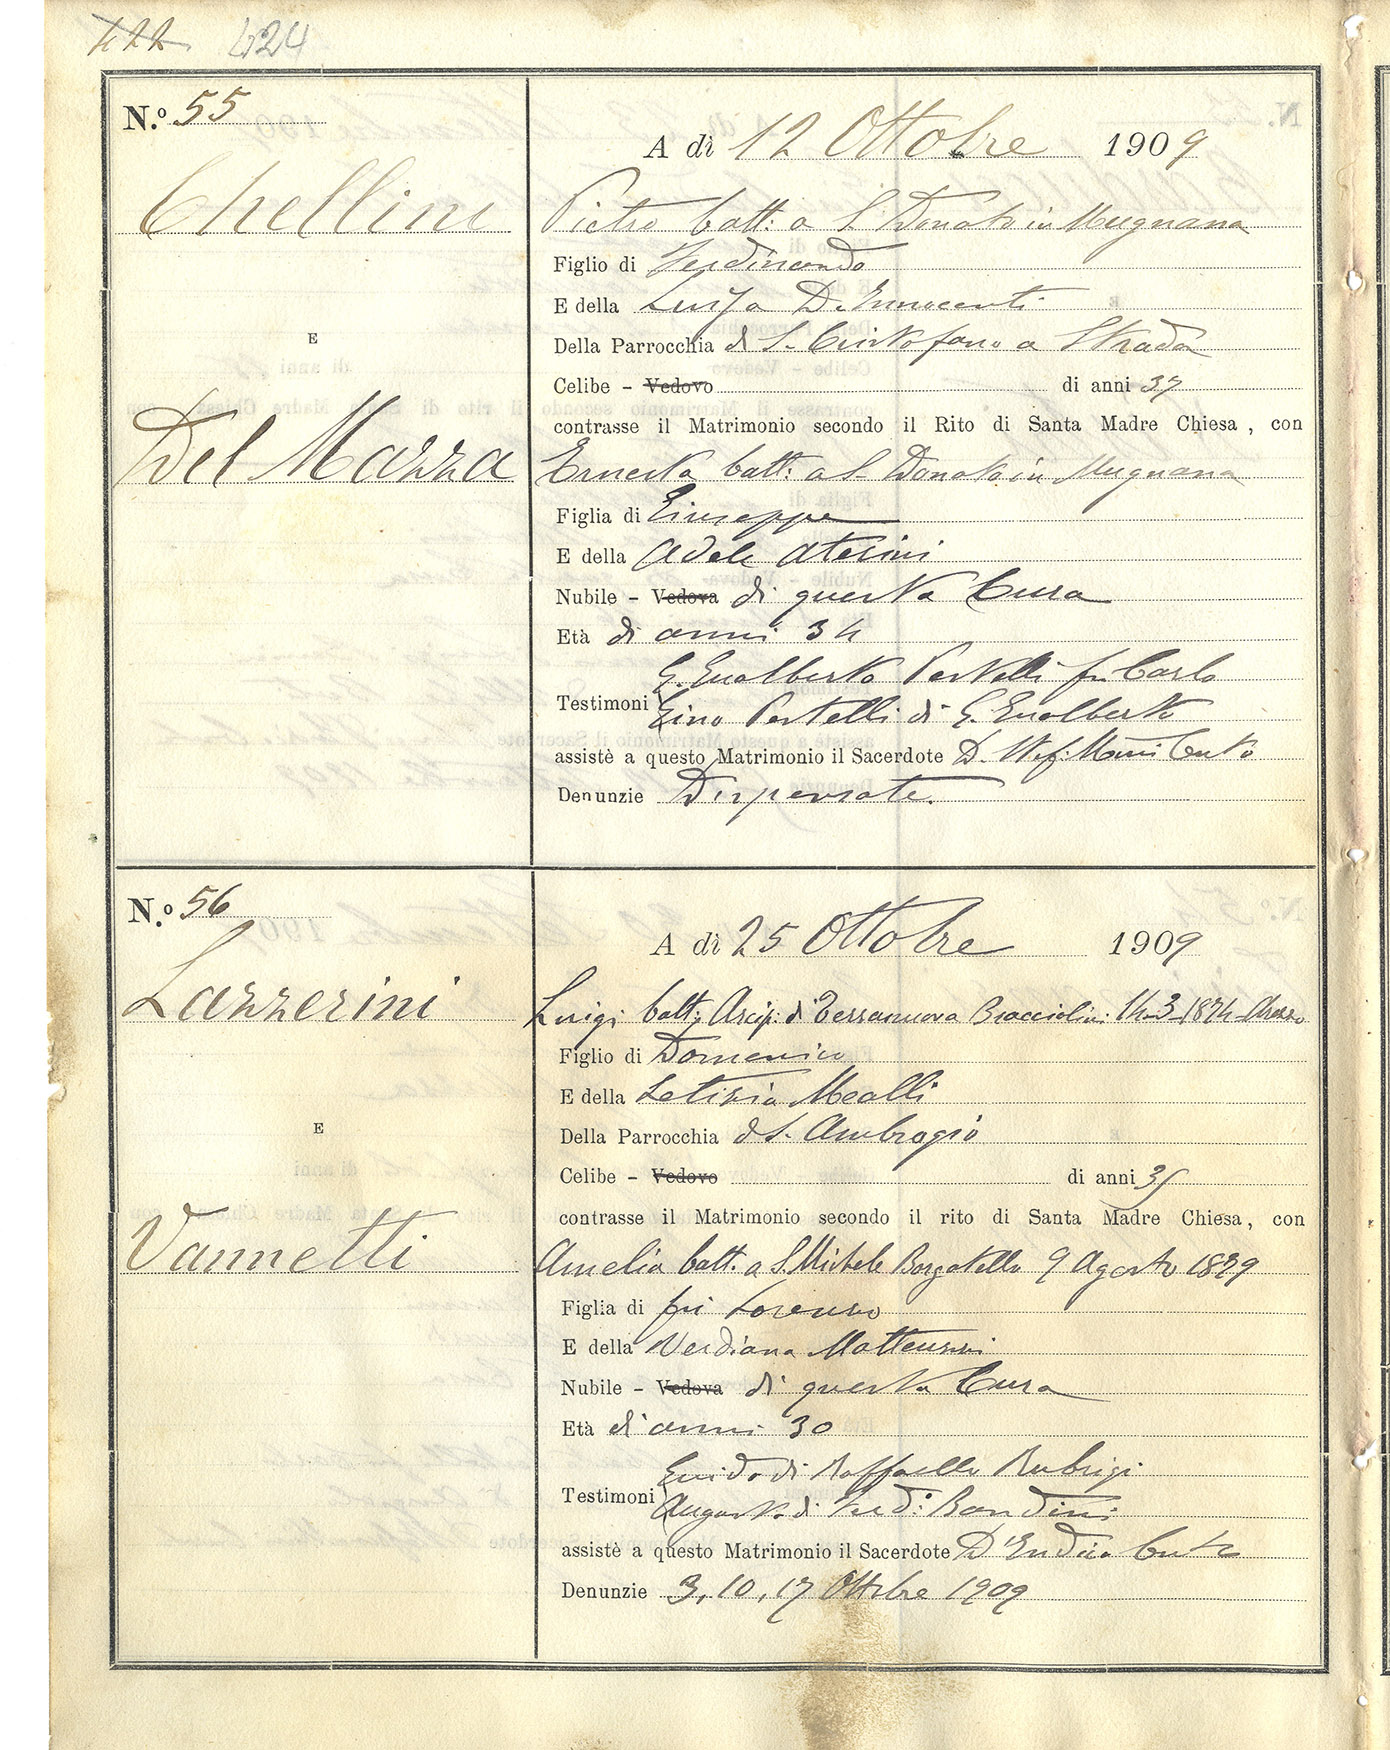 422 424
N.º 55
A dì 12 Ottobre 1909
Chellini
Pietro batt: a S. Donato in Mugnana
Figlio di Ferdinando
E della Luisa D. Innocenti
E
Della Parrocchia di S. Cristofano a Strada
Celibe - Vedovo di anni 37
contrasse il Matrimonio secondo il Rito di Santa Madre Chiesa, con
Del Mazza
Ernesta batt: a S. Donato in Mugnana
Figlia di Giuseppe
E della Adele
Nubile - Vedova di questa Cura
Età di anni 34
G. Gualberto Partelli fu Carlo
Testimoni
Gino Partelli di G. Gualberto
assistè a questo Matrimonio il Sacerdote D.
Denunzie Dispensate.
N.º 56
A dì 25 Ottobre 1909
Lazzerini
Luigi batt: Arcip. di Terranuova Bracciolini 14-3-1874 Arezzo
Figlio di Domenico
E della Letizia Mealli
E
Della Parrocchia di S. Ambrogio
Celibe - Vedovo di anni 35
contrasse il Matrimonio secondo il rito di Santa Madre Chiesa, con
Vannetti
Amelia batt. a S. Michele Borgatello 9 Agosto 1879
Figlia di fu Lorenzo
E della Verdiana Matteuzzi
Nubile - Vedova di questa Cura
Età di anni 30
Guido di Raffaello
Testimoni
Augusto di Ferd: Bandini
assistè a questo Matrimonio il Sacerdote
Denunzie 3, 10, 17 Ottobre 1909